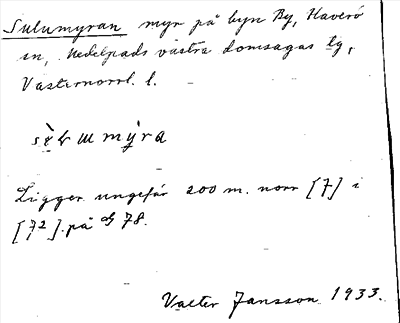 Sulumyran myr på byn By, Haverö
sn, Medelpads västra domsagas tg,
Västernorrl. l.
Ligger ungefär 200 m. norr [7] i
[72] på 78.
Valter Jansson 1933.